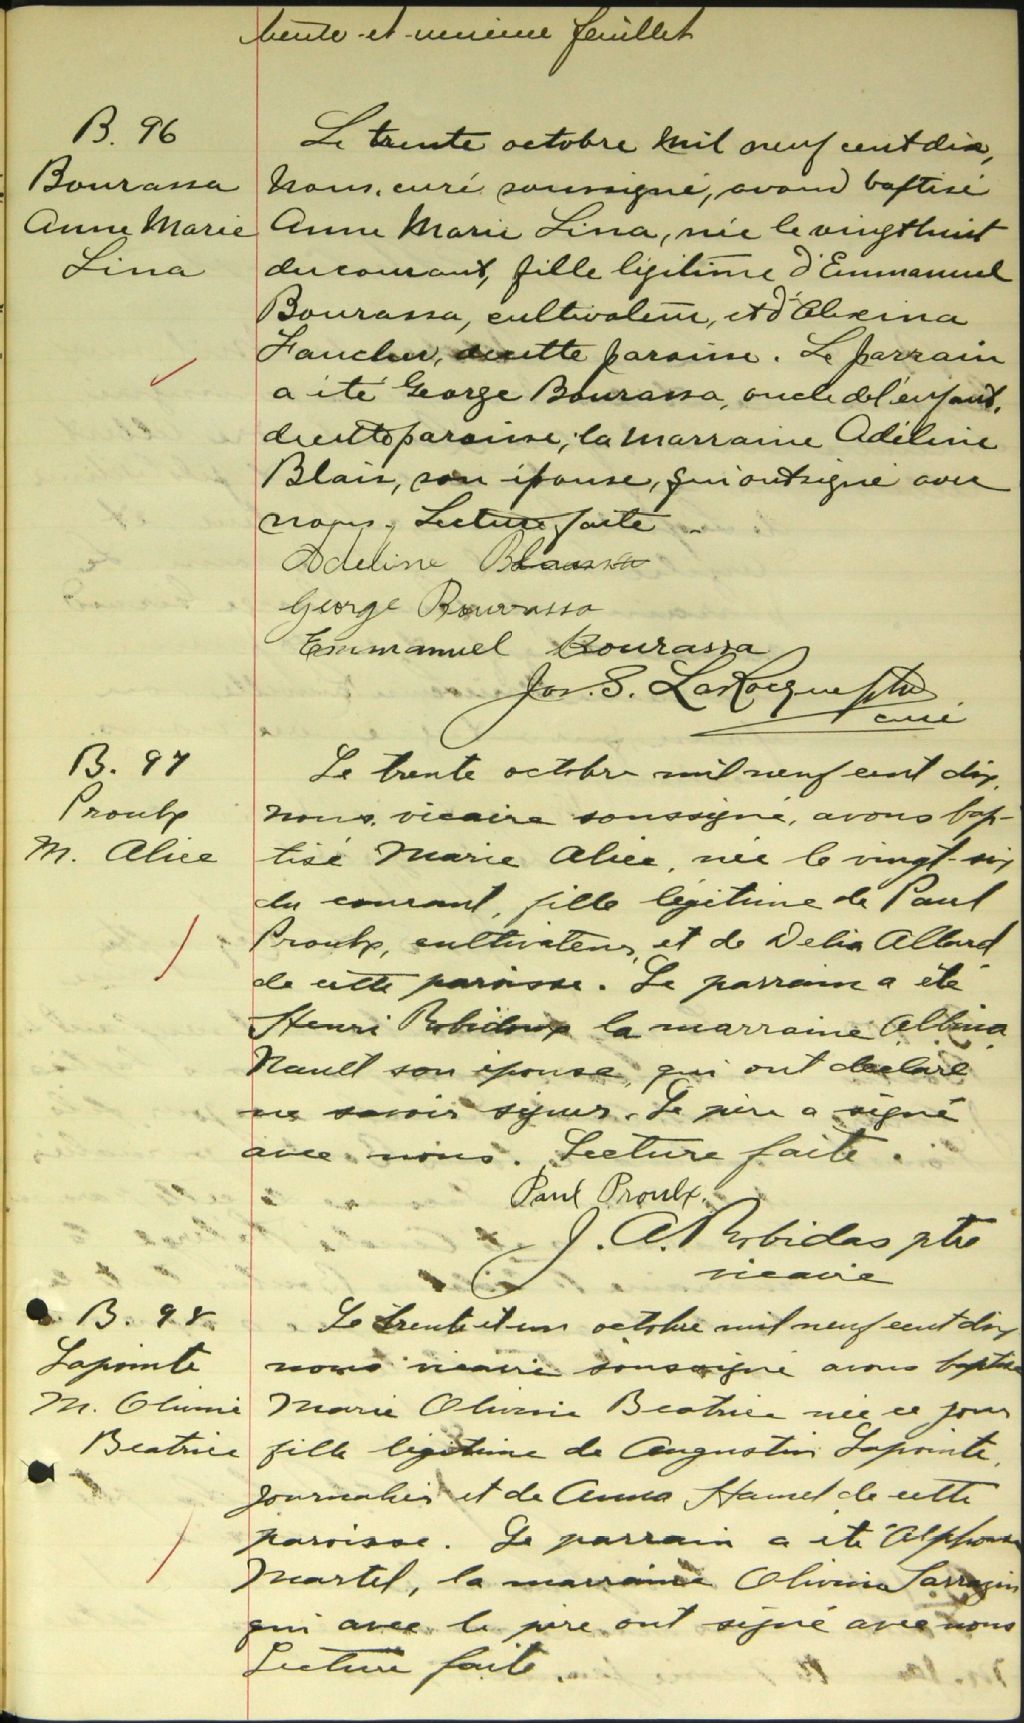 trente et unième feuillet
B. 96
Bourassa
Anne Marie
Lina
Le trente octobre mil neuf cent dix,
Nous, curé soussigné, avons baptisé
Anne Marie Lina, née le vingt huit
du courant, fille légitime d'Emmanuel
Bourassa, cultivateur, et d'Alexina
Faucher, de cette paroisse. Le parrain
a été George Bourassa, oncle de l'enfant,
de cette paroisse, la marraine Adéline
Blais, son épouse, qui ont signé avec
nous. Lecture faite.
Adeline
George Bourassa
Emmanuel Bourassa
Jos. S. LaRocque ptre
curé
B. 97
Proulx
M. Alice
Le trente octobre mil neuf cent dix,
nous, vicaire soussigné, avons bap-
tisé Marie Alice, née le vingt-six
du courant, fille légitime de Paul
Proulx, cultivateur, et de Delia Allard
de cette paroisse. Le parrain a été
Henri Robidoux la marraine Albina
Nault son épouse, qui ont déclaré
ne savoir signer. Le père a signé
avec nous. Lecture faite.
Paul Proulx.
J. A. Robidas ptre
vicaire
B. 98
Lapointe
M. Olivine
Beatrice
Le trente et un octobre mil neuf cent dix
nous vicaire soussigné avons baptisé
Marie Olivine Beatrice née ce jour
fille légitime de Augustin Lapointe,
journalier et de Anna Hamel de cette
paroisse. Le parrain a été Alphonse
Martel, la marraine Olivine Sarrazin
qui avec le père ont signé avec nous
Lecture faite.